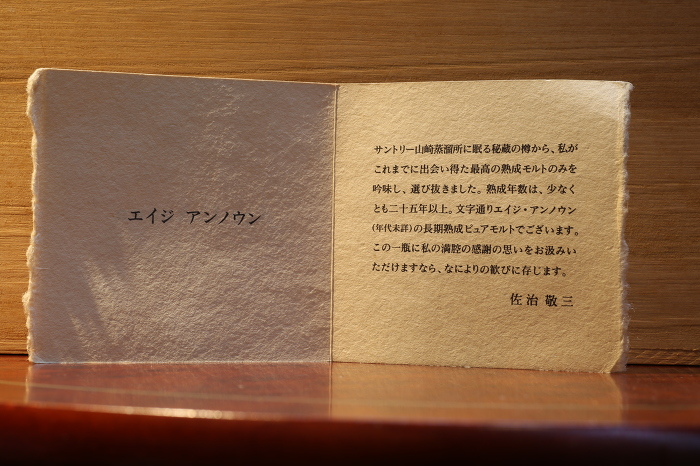 エイジ アンノウン
サントリー山崎蒸溜所に眠る秘蔵の樽から、私が
これまでに出会い得た最高の熟成モルトのみを
吟味し、選び抜きました。熟成年数は、少なく
とも二十五年以上。文字通りエイジ・アンノウン
(年代未詳)の長期熟成ピュアモルトでございます。
この一瓶に私の満腔の感謝の思いをお汲みい
ただけますなら、なによりの歓びに存じます。
佐治 敬三